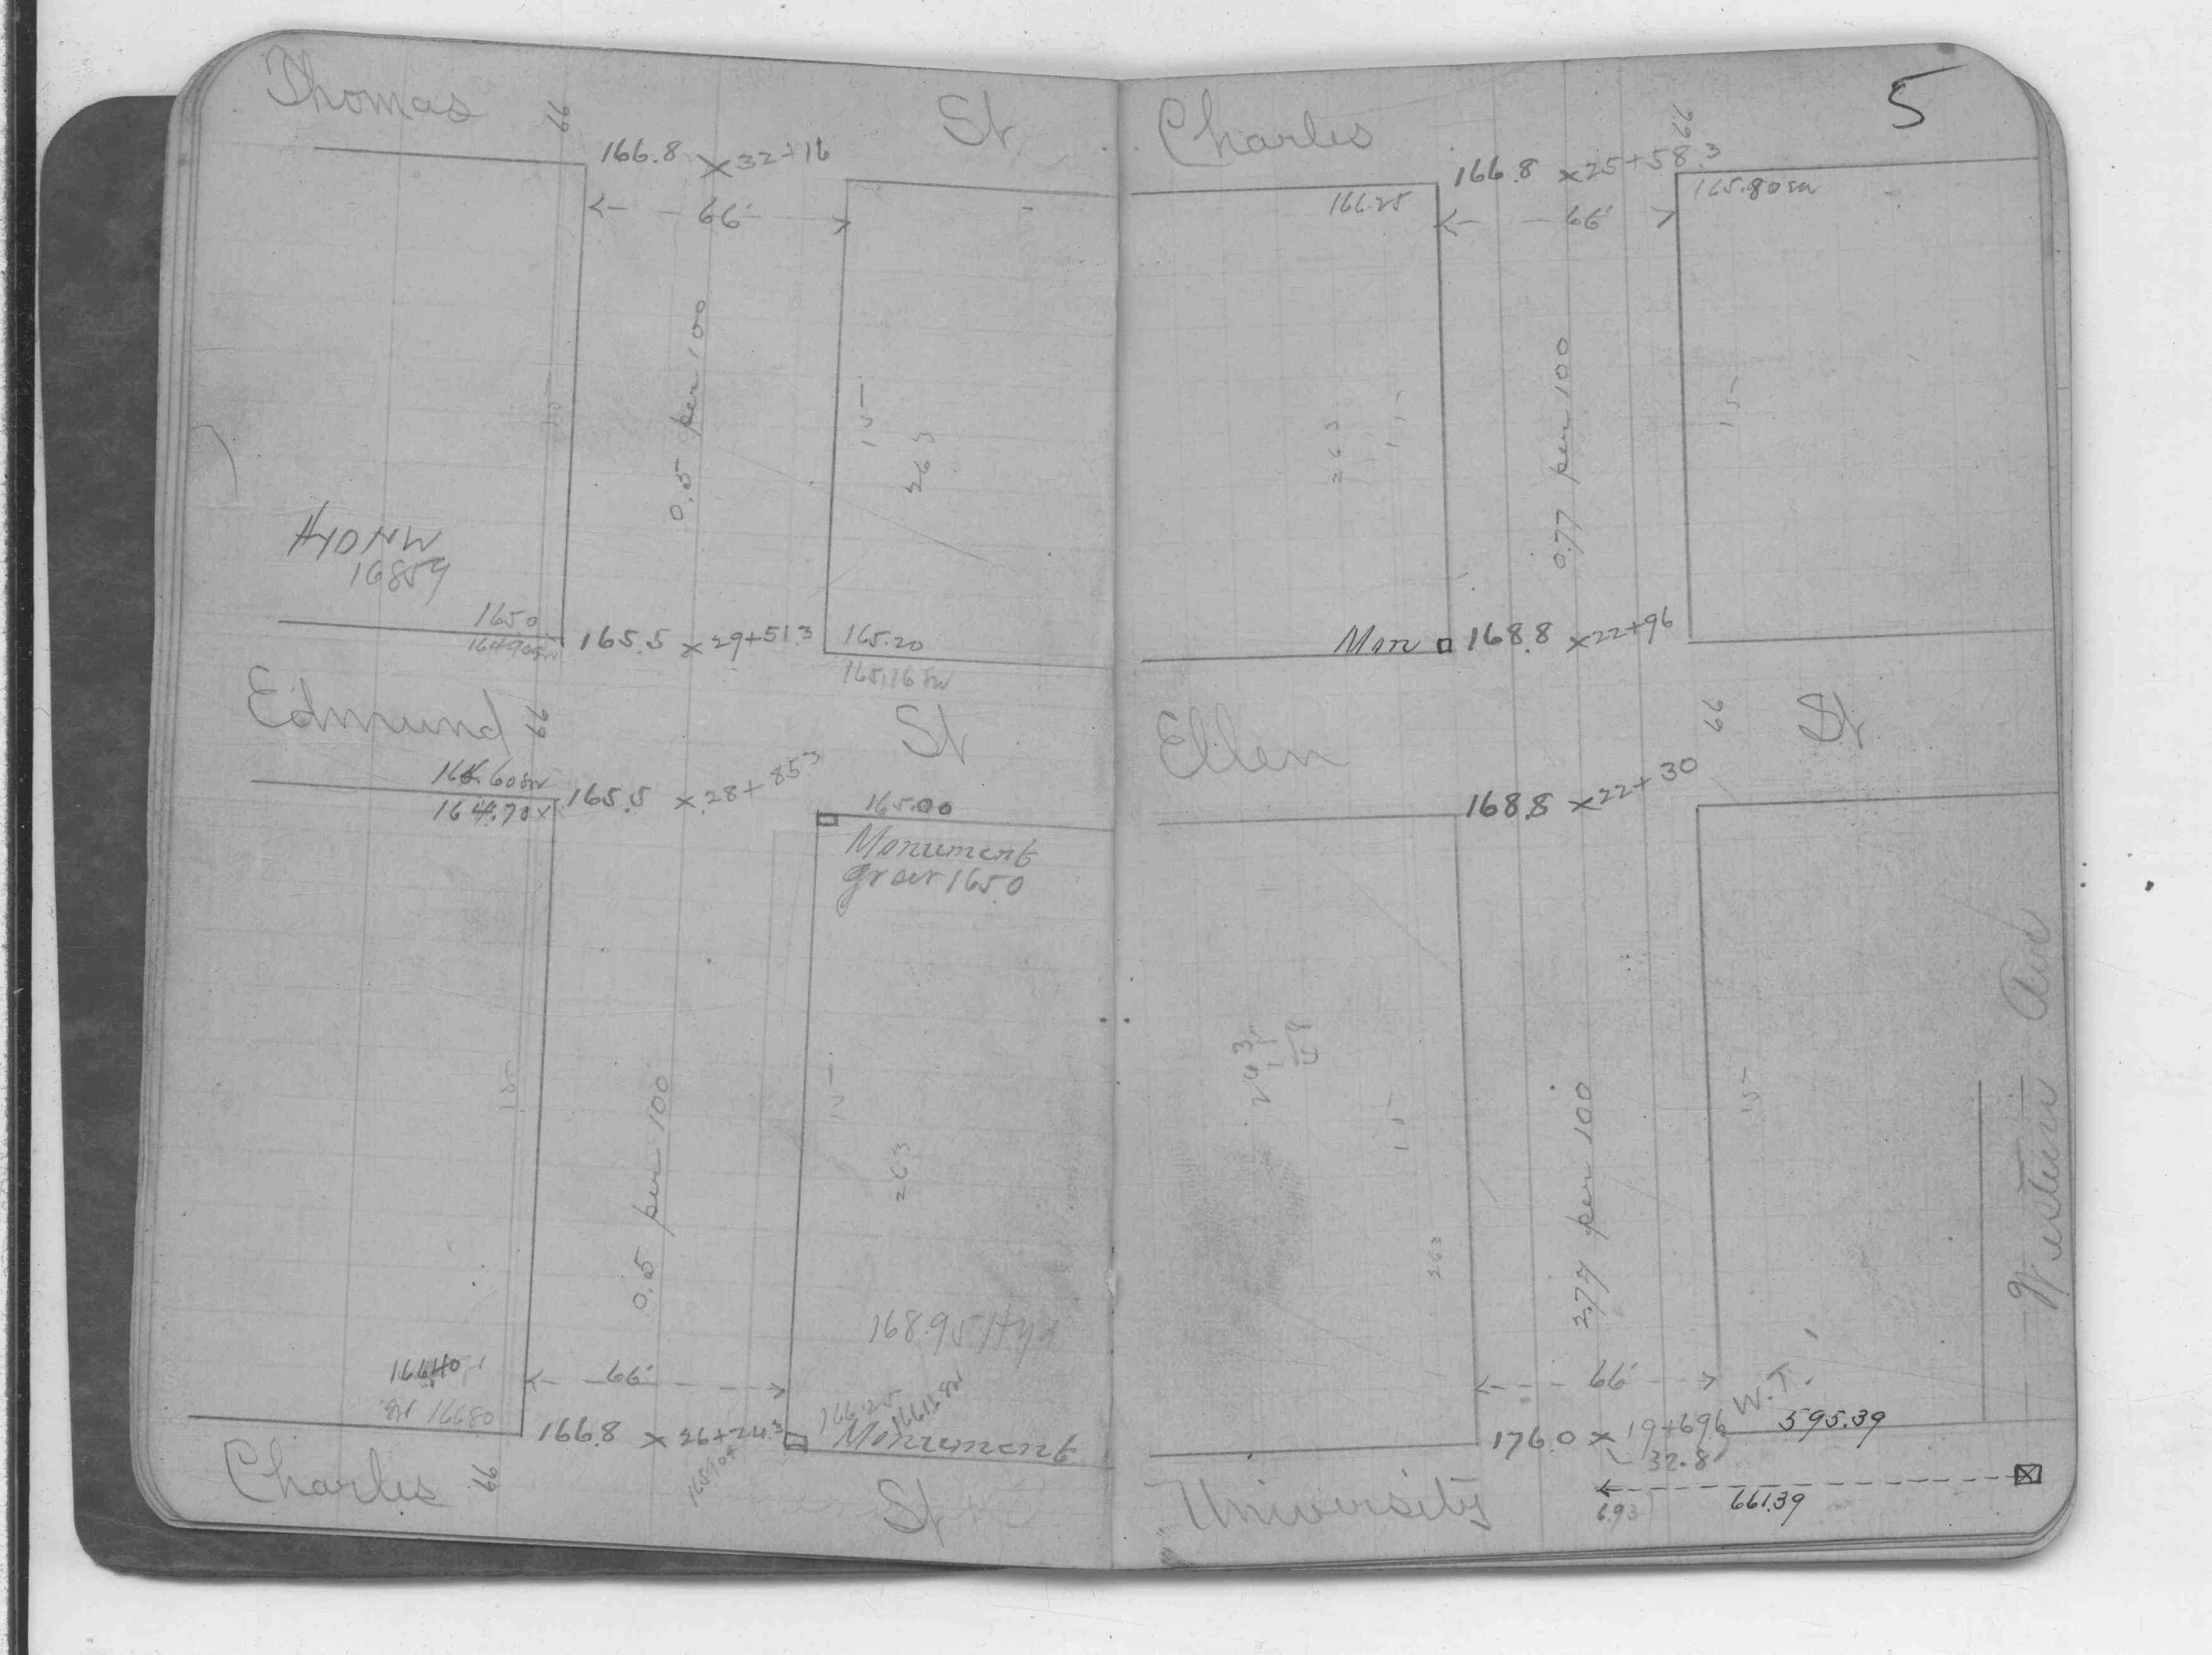 Thomas 66 St
166.8 x 32+16
66'
0.5 per 100
15
263
Hyd NW
168.59
165.0
165.5 x 29+51.3
165.20
164.90 sw
165.16 sw
Edmund 66 St
164.70 x
165.5 x 28+85.3
165.00
Monument
165.0
15
15
0.5 per 100
263
168.95 Hyd
166.40
66'
166.80
166.8 x 26+24.3
166.25
Monument
Charles 66 St
5
Charles 66
166.8 x 25+58.3
166.25
165.80 sw
66'
263
15
15
0.77 per 100
Mon 168.8 x 22+96
Ellen 66 St
168.8 x 22+30
263
15
48
15
263
2.74 per 100
15
Western Ave
66'
W.T.
176.0 x 19+69.6
595.39
32.8
University
6.93
661.39